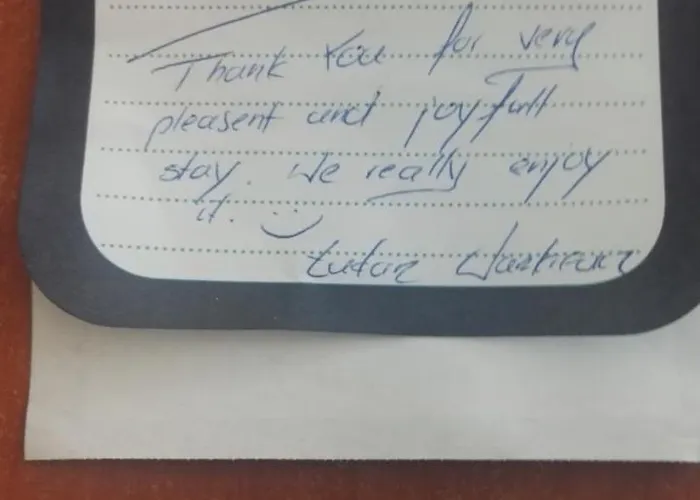 Thank You for very
pleasent and joyfull
stay. We really enjoy
it. :)